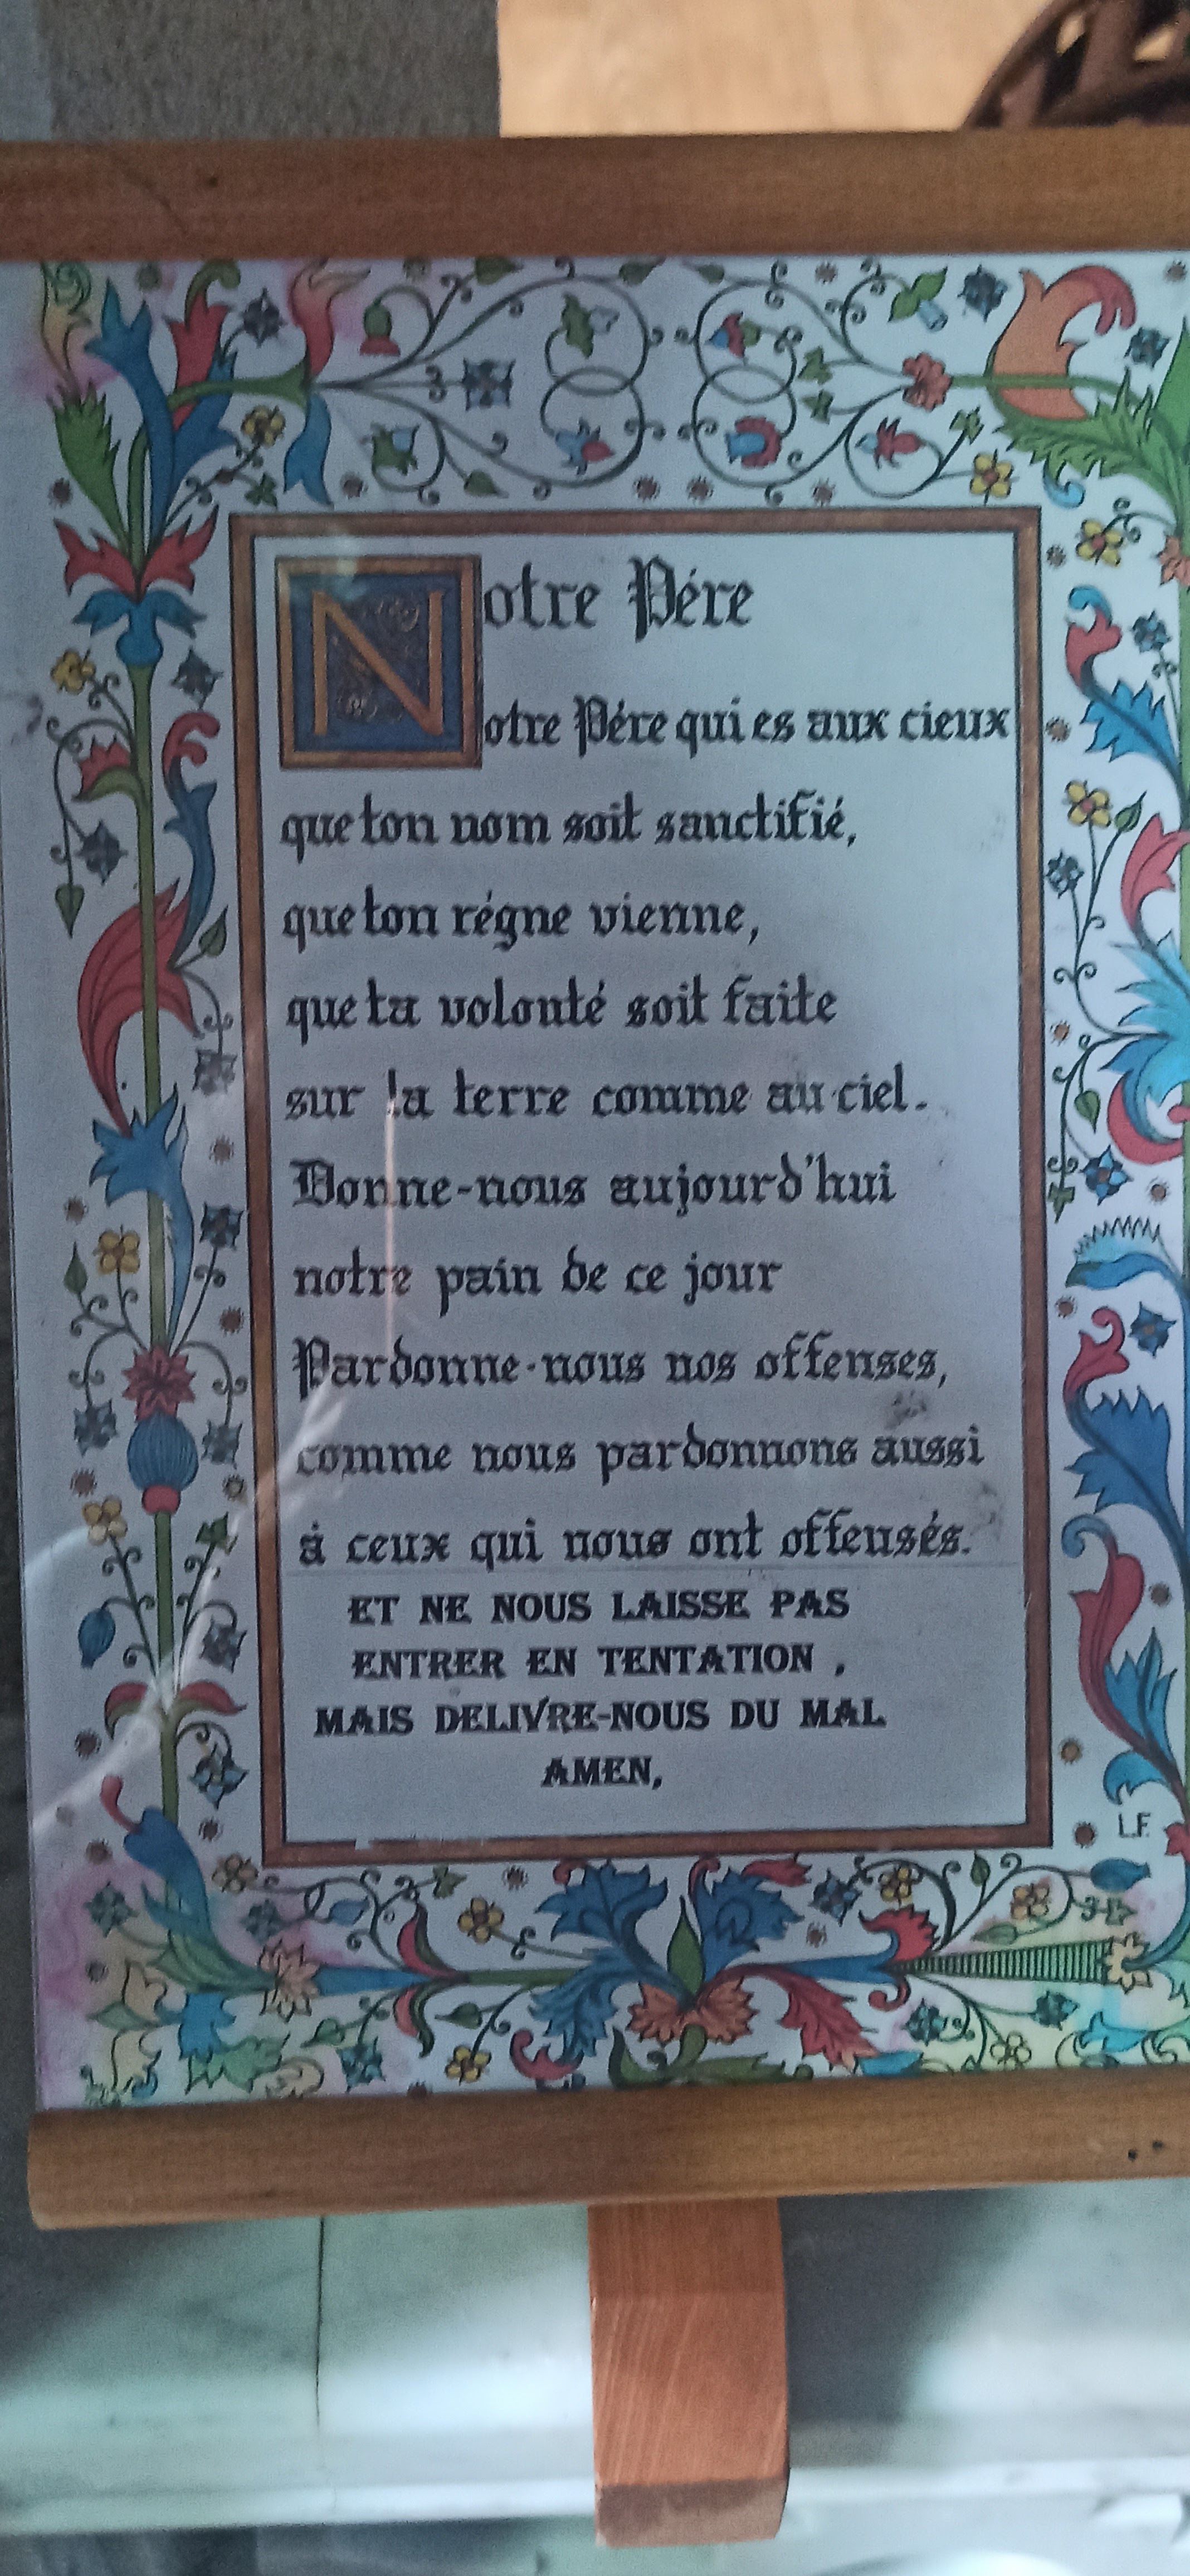 Notre Pére
otre Pére qui es aux cieux
que ton nom soit sanctifié,
que ton régne vienne,
que ta volonté soit faite
sur la terre comme au ciel.
Donne-nous aujourd'hui
notre pain de ce jour
Pardonne-nous nos offenses,
comme nous pardonnons aussi
à ceux qui nous ont offensés.
ET NE NOUS LAISSE PAS
ENTRER EN TENTATION ,
MAIS DELIVRE-NOUS DU MAL
AMEN,
L.F.